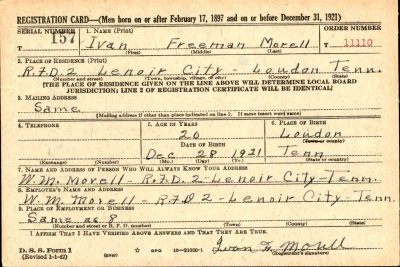 REGISTRATION CARD—(Men born on or after February 17, 1897 and on or before December 31, 1921)
SERIAL NUMBER 1. NAME (Print) ORDER NUMBER
157 Ivan Freeman Morell 11110
(First) (Middle) (Last)
2. PLACE OF RESIDENCE (Print)
R.F.D. 2 Lenoir City - Loudon Tenn.
(Number and street) (Town, township, village, or city) (County) (State)
[THE PLACE OF RESIDENCE GIVEN ON THE LINE ABOVE WILL DETERMINE LOCAL BOARD
JURISDICTION; LINE 2 OF REGISTRATION CERTIFICATE WILL BE IDENTICAL]
3. MAILING ADDRESS
Same
[Mailing address if other than place indicated on line 2. If same insert word same]
4. TELEPHONE 5. AGE IN YEARS 6. PLACE OF BIRTH
20 Loudon
DATE OF BIRTH (Town or county)
Dec 28 1921 Tenn
(Exchange) (Number) (Mo.) (Day) (Yr.) (State or country)
7. NAME AND ADDRESS OF PERSON WHO WILL ALWAYS KNOW YOUR ADDRESS
W. M. Morell - R.F.D. 2 - Lenoir City - Tenn.
8. EMPLOYER'S NAME AND ADDRESS
W. M. Morell - R.F.D 2 - Lenoir City - Tenn.
9. PLACE OF EMPLOYMENT OR BUSINESS
Same as 8
(Number and street or R. F. D. number) (Town) (County) (State)
I AFFIRM THAT I HAVE VERIFIED ABOVE ANSWERS AND THAT THEY ARE TRUE.
D. S. S. Form 1
(Revised 1-1-42) (over) GPO 16—21630-1 Ivan F. Morell
(Registrant's signature)